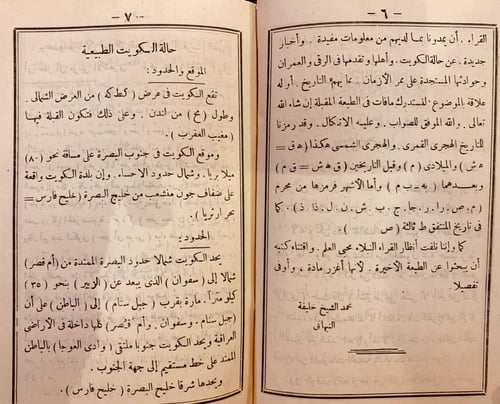 — ٦ —
القراء . أن يمدونا بما لديهم من معلومات مفيدة . وأخبار
جديدة . عن حالة الكويت . وأهلها وتقدمها في الرقي والعمران
وحوادثها المستجدة على ممر الأزمان . مما يهم التاريخ . أو له
علاقة الموضوع لنستدرك مافات في الطبعة المقبلة إن شاء الله
تعالى . والله الموفق للصواب . وعليه الاتكال . وقد رمزنا
للتاريخ الهجري القمرى . والهجرى الشمسى هكذا ( ه ق =
ه ش ) والميلادى ( م ) وقبل التاريخين ( ق ه ش = ق م )
وبعدهما ( به - ب م ) وأما الأشهر فرمزها من محرم
( م . ص . را . ر . جا . ج . ب . ش . ن . ل . ذا . ذ ) . كما
في تاريخ المنتفق ط ثالثة ( ص )
كما وإننا نلفت أنظار القراء النبلاء محبي العلم . واقتناء كتبه
أن يبحثوا عن الطبعة الأخيرة . لأنها أغزر مادة ، وأوفى
تفصيلا
محمد الشيخ خليفة
النبهانى
— ٧ —
حالة الكويت الطبيعية
الموقع والحدود :
تقع الكويت فى عرض ( كط كه ) من العرض الشمالى .
وطول ( مح ) من لندن . وعلى ذلك فتكون القبلة فيها
( مغيب العقرب ) .
وموقع الكويت في جنوب البصرة على مسافة نحو ( ٨٠ )
ميلا بريا . وشمال حدود الاحساء . وإن بلدة الكويت واقعة
على ضفاف جون منشعب من خليج البصرة ( خليج فارس =
بحر ارتريا ) .
الحدود :
يحد الكويت شمالا حدود البصرة الممتدة من ( أم قصر )
شمالا إلى ( سفوان ) الذى يبعد عن ( الزبير ) بنحو ( ٣٥ )
كيلو متراً . مارة بقرب ( جبل سنام ) إلى ( الباطن ) على أن
( جبل سنام . وسفوان . وأم قصر ) كلها داخلة فى الاراضى
العراقية ويحد الكويت جنوبا ملتقى ( وادى العوجا ) بالباطن
الممتد على خط مستقيم إلى جهة الجنوب .
ويحدها شرقا خليج البصرة ( خليج فارس ) .